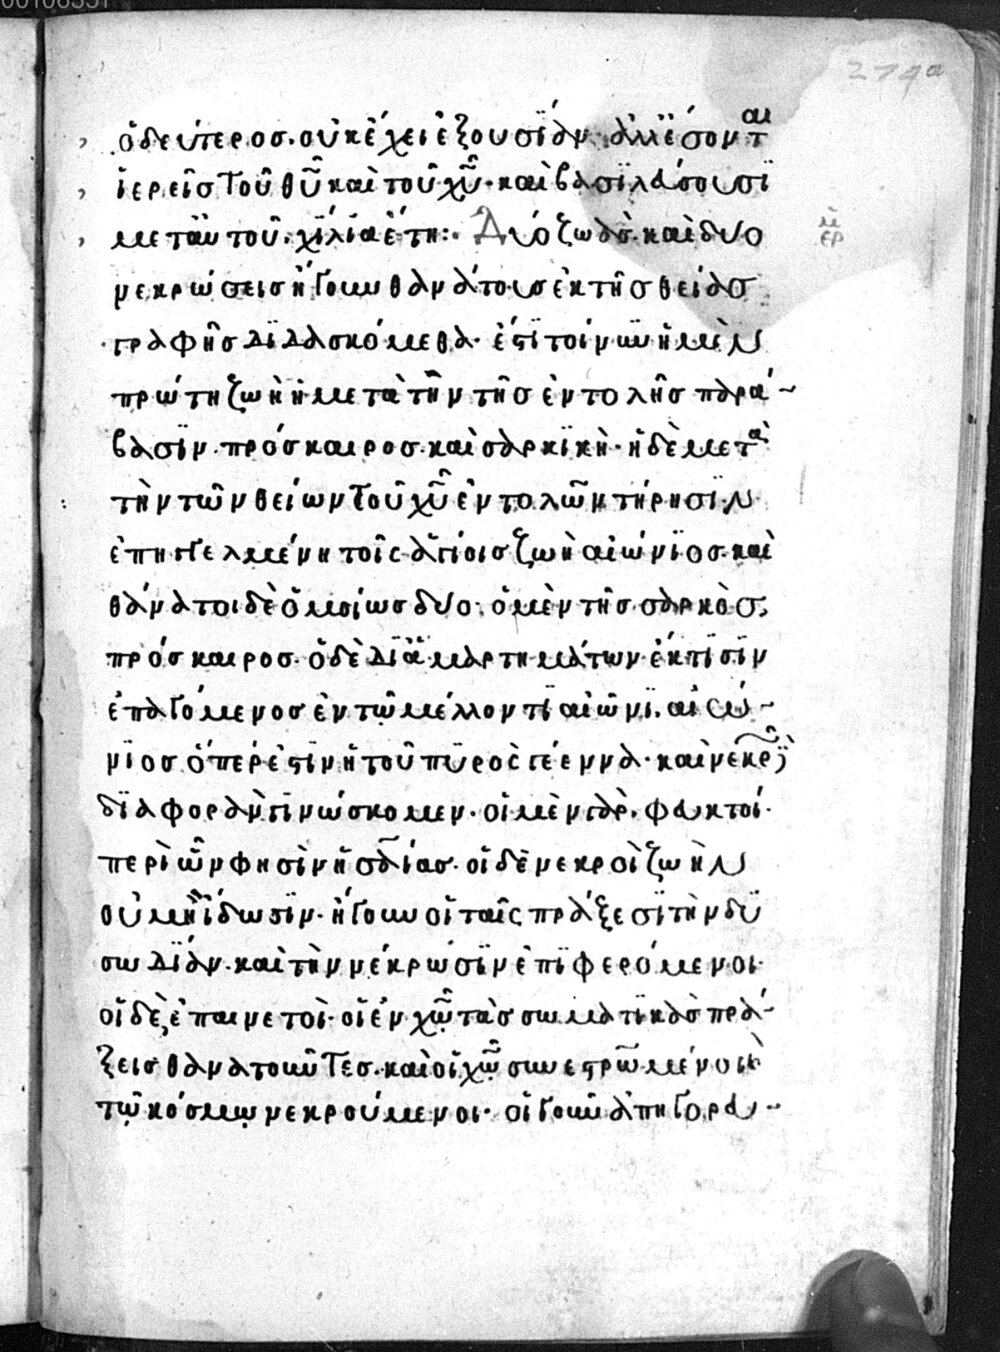 274a
ὁ δεύτερος. οὐκ ἔχει ἐξουσΐαν· ἀλλ' ἔσονται
ἱερεῖς τοῦ θῦ καὶ τοῦ χῦ· καὶ βασϊλεύσουσϊ
μετ' αὐτοῦ. χΐλϊα ἔτη:· Δύο ζωὰς. καὶ δύο
νεκρώσεις ἤγουν θανάτους ἐκ τῆς θείας
γραφῆς διδασκόμεθα· ἐστϊ τοίνϋν ἡ μὲν
πρώτη ζωὴ ἡ μετὰ τὴν τῆς ἐντολῆς παρά~
βασϊν. πρόσκαιρος. καὶ σαρκϊκὴ· ἡ δὲ μετὰ
τὴν τῶν θείων τοῦ χῦ ἐντολῶν τήρησϊν
ἐπηγγελμένη τοῖς ἁγίοις ζωὴ αἰώνϊος. καὶ
θάνατοι δὲ ὁμοίως δύο· ὁ μὲν τῆς σαρκὸς,
πρόσκαιρος. ὁ δὲ δϊ' ἁμαρτημάτων ἔκτϊσϊν
ἐπαγόμενος ἐν τῷ μέλλοντϊ αἰῶνϊ. αἰώ~
νϊος ὅπερ ἐστϊν ἡ τοῦ πϋρὸς γέεννα· καὶ νεκρῶν
δϊαφορὰν γϊνώσκομεν. οἱ μὲν γὰρ. φευκτοί.
περὶ ὧν φησὶν ἡσαΐας. οἱ δὲ νεκροὶ ζωὴν
οὐ μὴ ἴδωσϊν· ἤγουν οἱ ταῖς πράξεσϊ τὴν δϋ
σωδΐαν. καὶ τὴν νέκρωσϊν ἐπϊφερόμενοι·
οἱ δὲ, ἐπαινετοὶ· οἱ ἐν χῷ τὰς σωματϊκὰς πρά~
ξεις θανατοῦντες. καὶ οἱ χῷ συνεστρωμένοι κ
τῷ κόσμῳ νεκρούμενοι· οἱ γοῦν ἀπηγορευ~